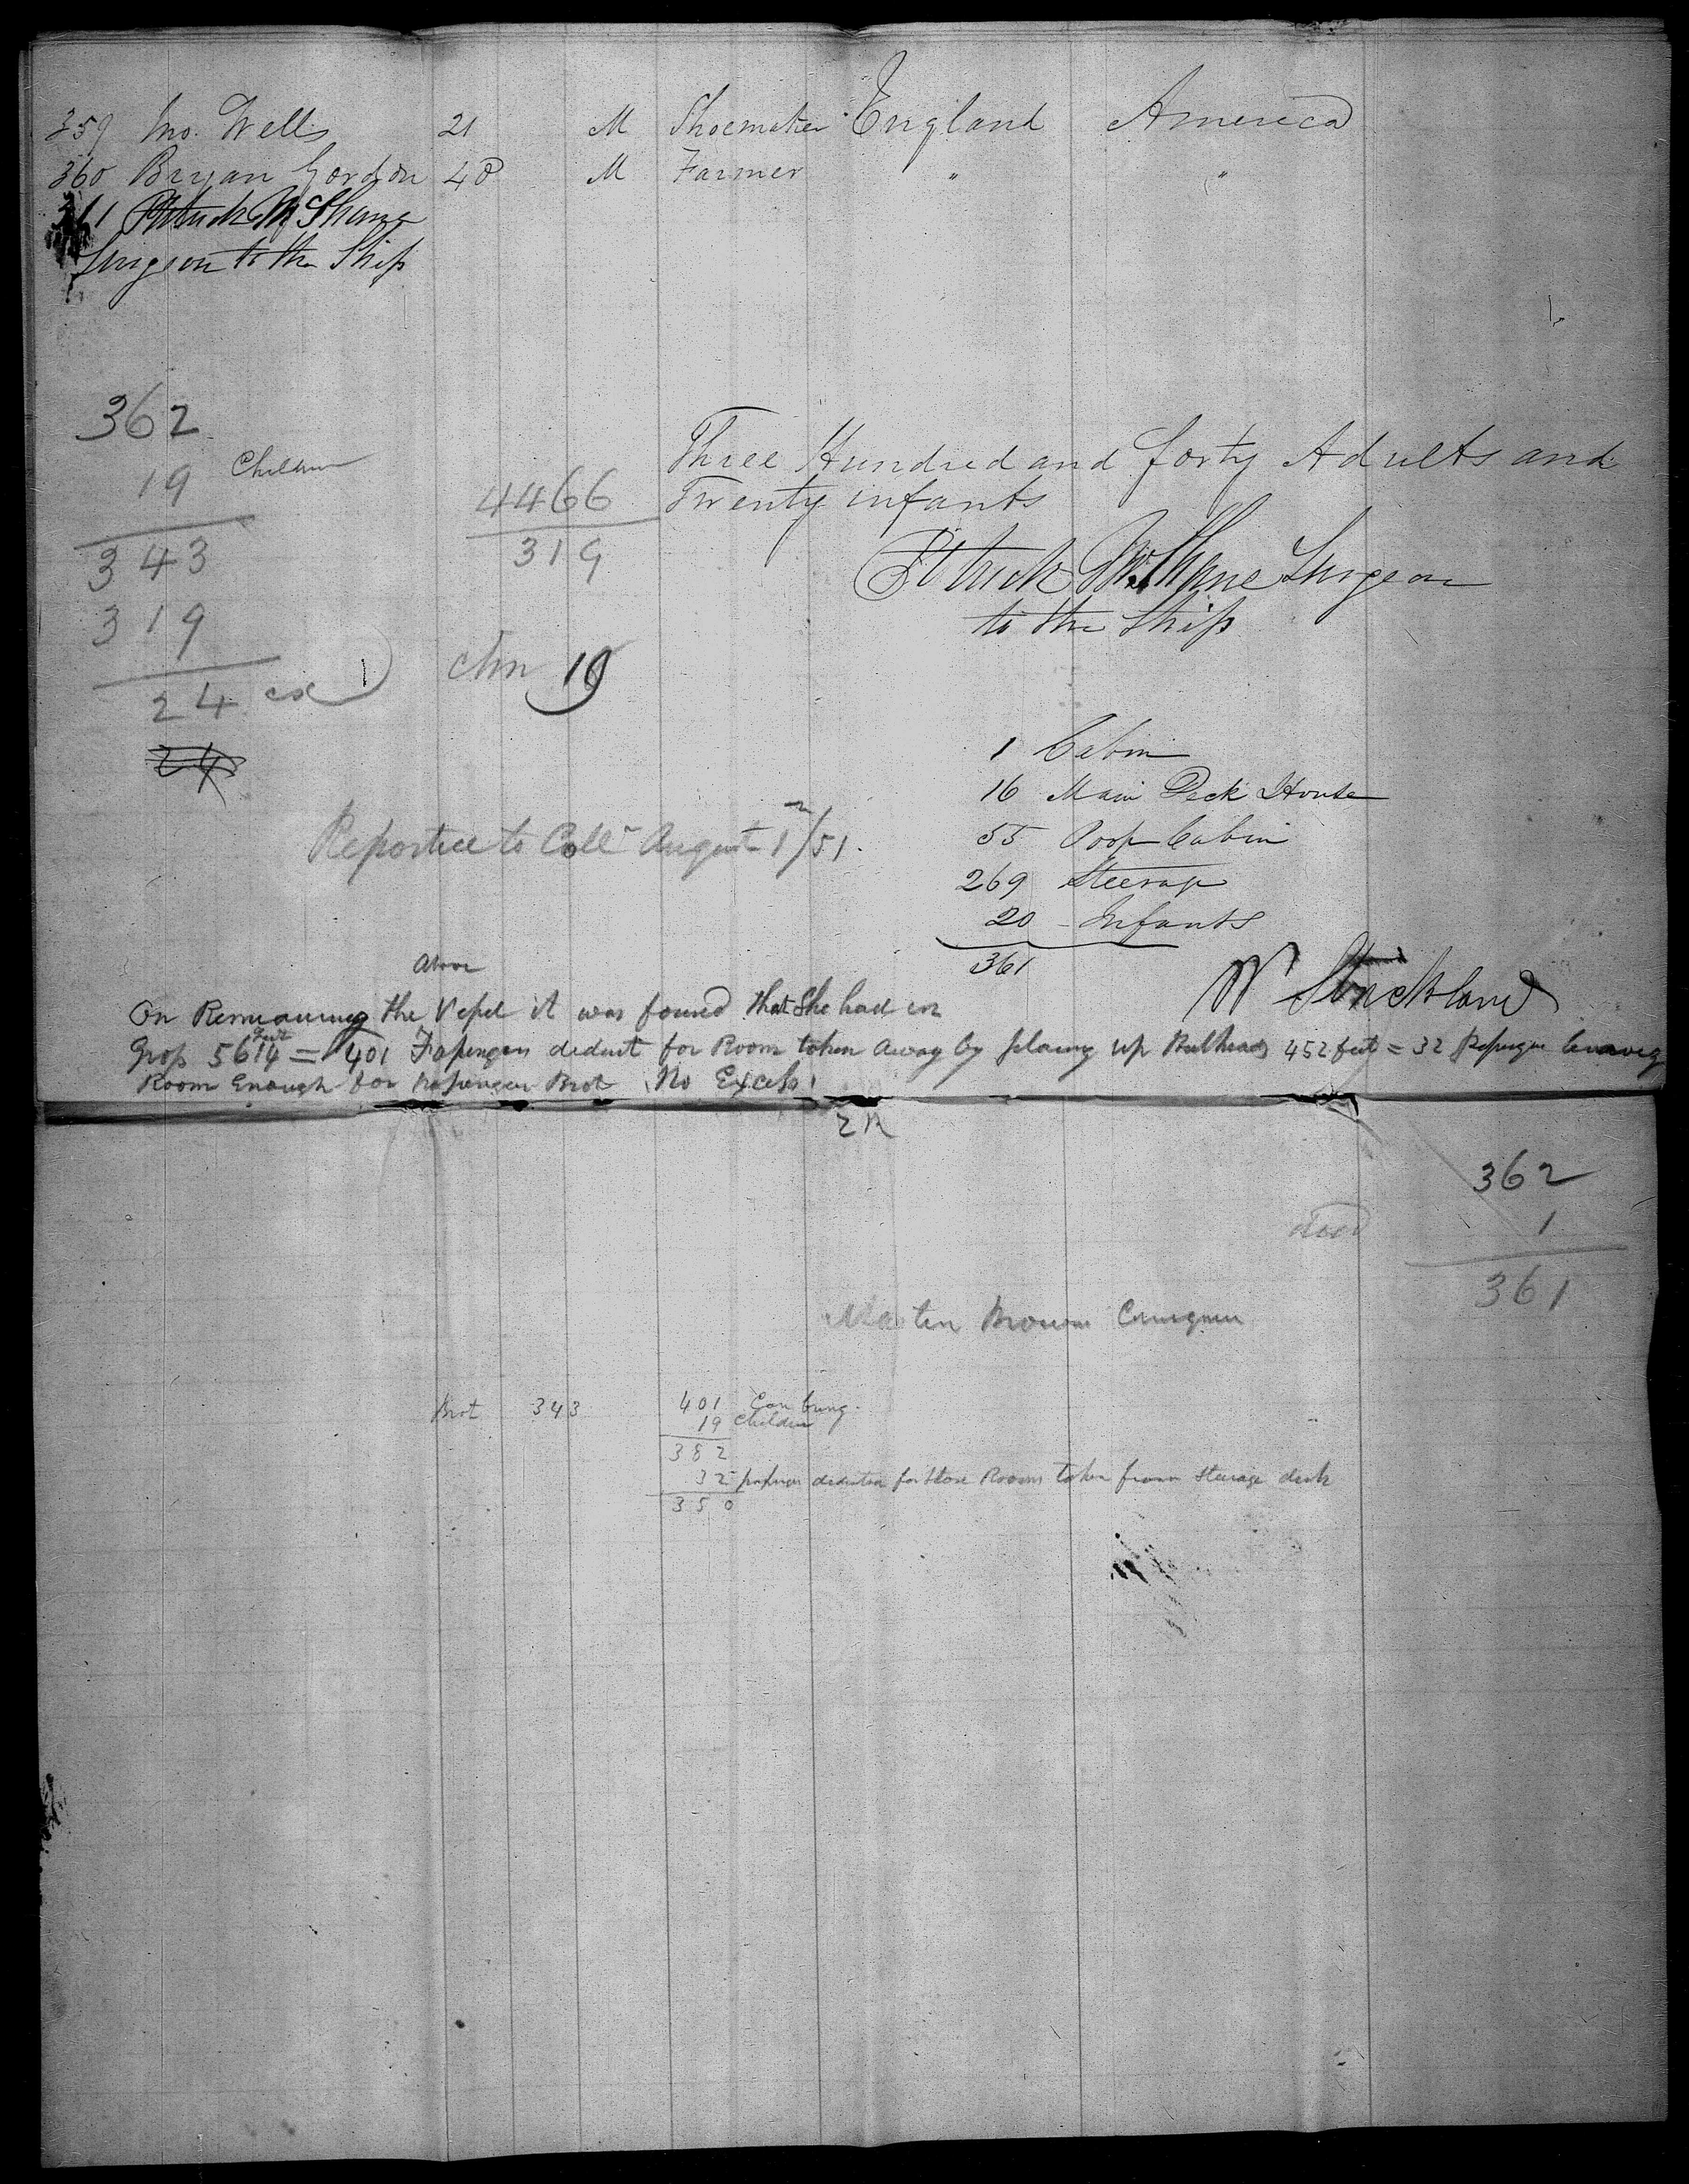 359 Jno. Wells 21 M Shoemaker England America
360 Bryan Gordon 48 M Farmer " "
361 Patrick McShane
Surgeon to the Ship
362
19 Children
343
319
24 ex
24
4466
319
Chn 19
Three Hundred and forty Adults and
Twenty infants
Patrick McShane Surgeon
to the Ship
1 Cabin
16 Main Deck House
55 Poop Cabin
269 Steerage
20 Infants
361
W Strickland
Reported to Coll August 1/51.
above
On Remeasuring the Vessel it was found that She had in
feet
Gross 5614 = 401 Passengers deduct for Room taken away by placing up Bulkheads 452 feet = 32 Passenger leaving
Room Enough for passenger Brot No Excess
362
dead 1
361
Martin Brown
Brot 343
401 Can bring
19 Children
382
32 passenger deducted for Store Rooms taken from Steerage deck
350